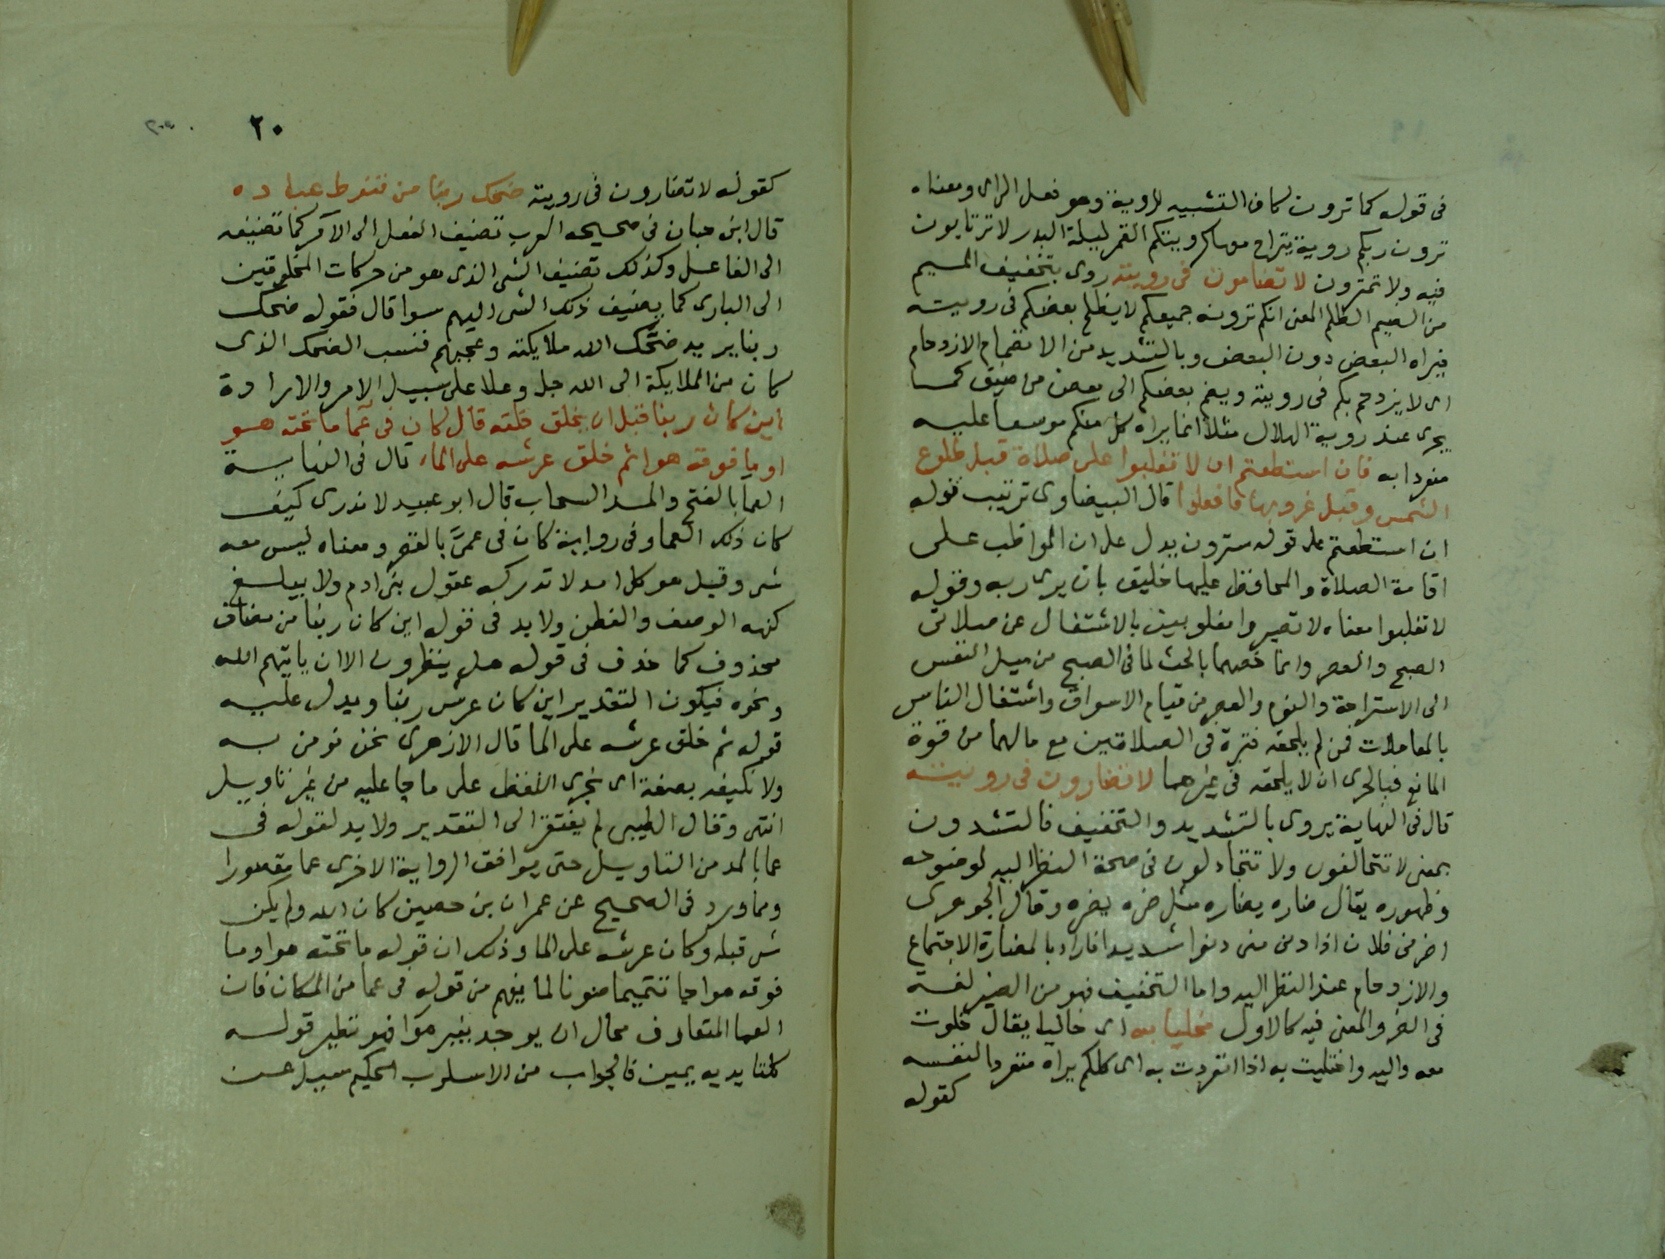 فى قوله كما ترون كاف التشبيه للروية وهو فعل الراى ومعناه
ترون ربكم روية ينزاح معها كرويتكم القمر ليلة البدر لا ترتابون
فيه ولا تمترون لا تضامون فى رويته روى بتخفيف الميم
من الضيم الظلم المعنى انكم ترونه جميعكم لا يظلم بعضكم فى رويته
فيراه البعض دون البعض وبالتشديد من الانضمام الازدحام
اى لا يزدحم بكم فى رويته ويضم بعضكم الى بعض من ضيق كما
يجرى عند روية الهلال مثلا انما يراه كل منكم موسعا عليه
منفردا به فان استطعتم ان لا تغلبوا على صلاة قبل طلوع
الشمس وقبل غروبها فافعلوا قال البيضاوى ترتيب قوله
ان استطعتم على قوله سترون يدل على ان المواظب على
اقامة الصلاة والمحافظ عليها خليق بان يرى ربه وقوله
لا تغلبوا معناه لا تصيروا مغلوبين بالاشتغال عن صلاتى
الصبح والعصر وانما خصهما بالحث لما فى الصبح من ميل النفس
الى الاستراحة والنوم والعصر من قيام الاسواق واشتغال الناس
بالمعاملات فمن لم يلحقه فترة فى الصلاتين مع مالهما من قوة
المانع فبالحرى ان لا يلحقه فى غيرهما لا تضارون فى رويته
قال فى النهاية يروى بالتشديد والتخفيف فالتشديد
بمعنى لا تتخالفون ولا تتجادلون فى صحة النظر اليه لوضوحه
وظهوره يقال ضاره يضاره مثل ضره يضره وقال الجوهرى
اضرنى فلان اذا دنى منى دنوا شديدا فاراد بالمضارة الاجتماع
والازدحام عند النظر اليه واما التخفيف فهو من الضير لغة
فى الضر والمعنى فيه كالاول مخليا به اى خاليا يقال خلوت
معه واليه واختليت به اذا انفردت به اى كلكم يراه منفردا لنفسه
كقوله
٢٠
كقوله لا تضارون فى رويته ضحك ربنا من قنوط عباده
قال ابن حبان فى صحيحه العرب تضيف الفعل الى الآمر كما تضيفه
الى الفاعل وكذلك تضيف الشى الذى هو من حركات المخلوقين
الى البارى كما يضيف ذلك الشى اليهم سوا قال فقوله ضحك
ربنا يريد ضحّك الله ملايكته وعجبهم فنسب الضحك الذى
كان من الملايكة الى الله جل وعلا على سبيل الامر والارادة
اين كان ربنا قبل ان يخلق خلقه قال كان فى عما ما تحته هو
او ما فوقه هوا ثم خلق عرشه على الماء قال فى النهاية
العما بالفتح والمد السحاب قال ابو عبيد لا ندرى كيف
كان ذلك العما وفى رواية كان فى عمىً بالقصر ومعناه ليس معه
شى وقيل هو كل امر لا تدركه عقول بنى ادم ولا يبلغ
كنهه الوصف والفطن ولا بد فى قوله اين كان ربنا من مضاف
محذوف كما حذف فى قوله هل ينظرون الا ان ياتيهم الله
ونحوه فيكون التقدير اين كان عرش ربنا ويدل عليه
قوله ثم خلق عرشه على الما قال الازهرى نحن نومن به
ولا نكيفه بصفة اى نجرى اللفظ على ما جا عليه من غير تاويل
انتهى وقال الطيبى لم يفتقر الى التقدير ولا بد لقوله فى
عما بالمد من التاويل حتى يوافق الرواية الاخرى عما مقصورا
ومما ورد فى الصحيح عن عمران بن حصين كان الله ولم يكن
شى قبله وكان عرشه على الما وذلك ان قوله ما تحته هوا وما
فوقه هوا جا تتميما صونا لما يفهم من قوله فى عما من المكان فان
العما المتعارف محال ان يوجد بغير هوا فهو نظير قوله
كلتا يديه يمين فالجواب من الاسلوب الحكيم سيل عن